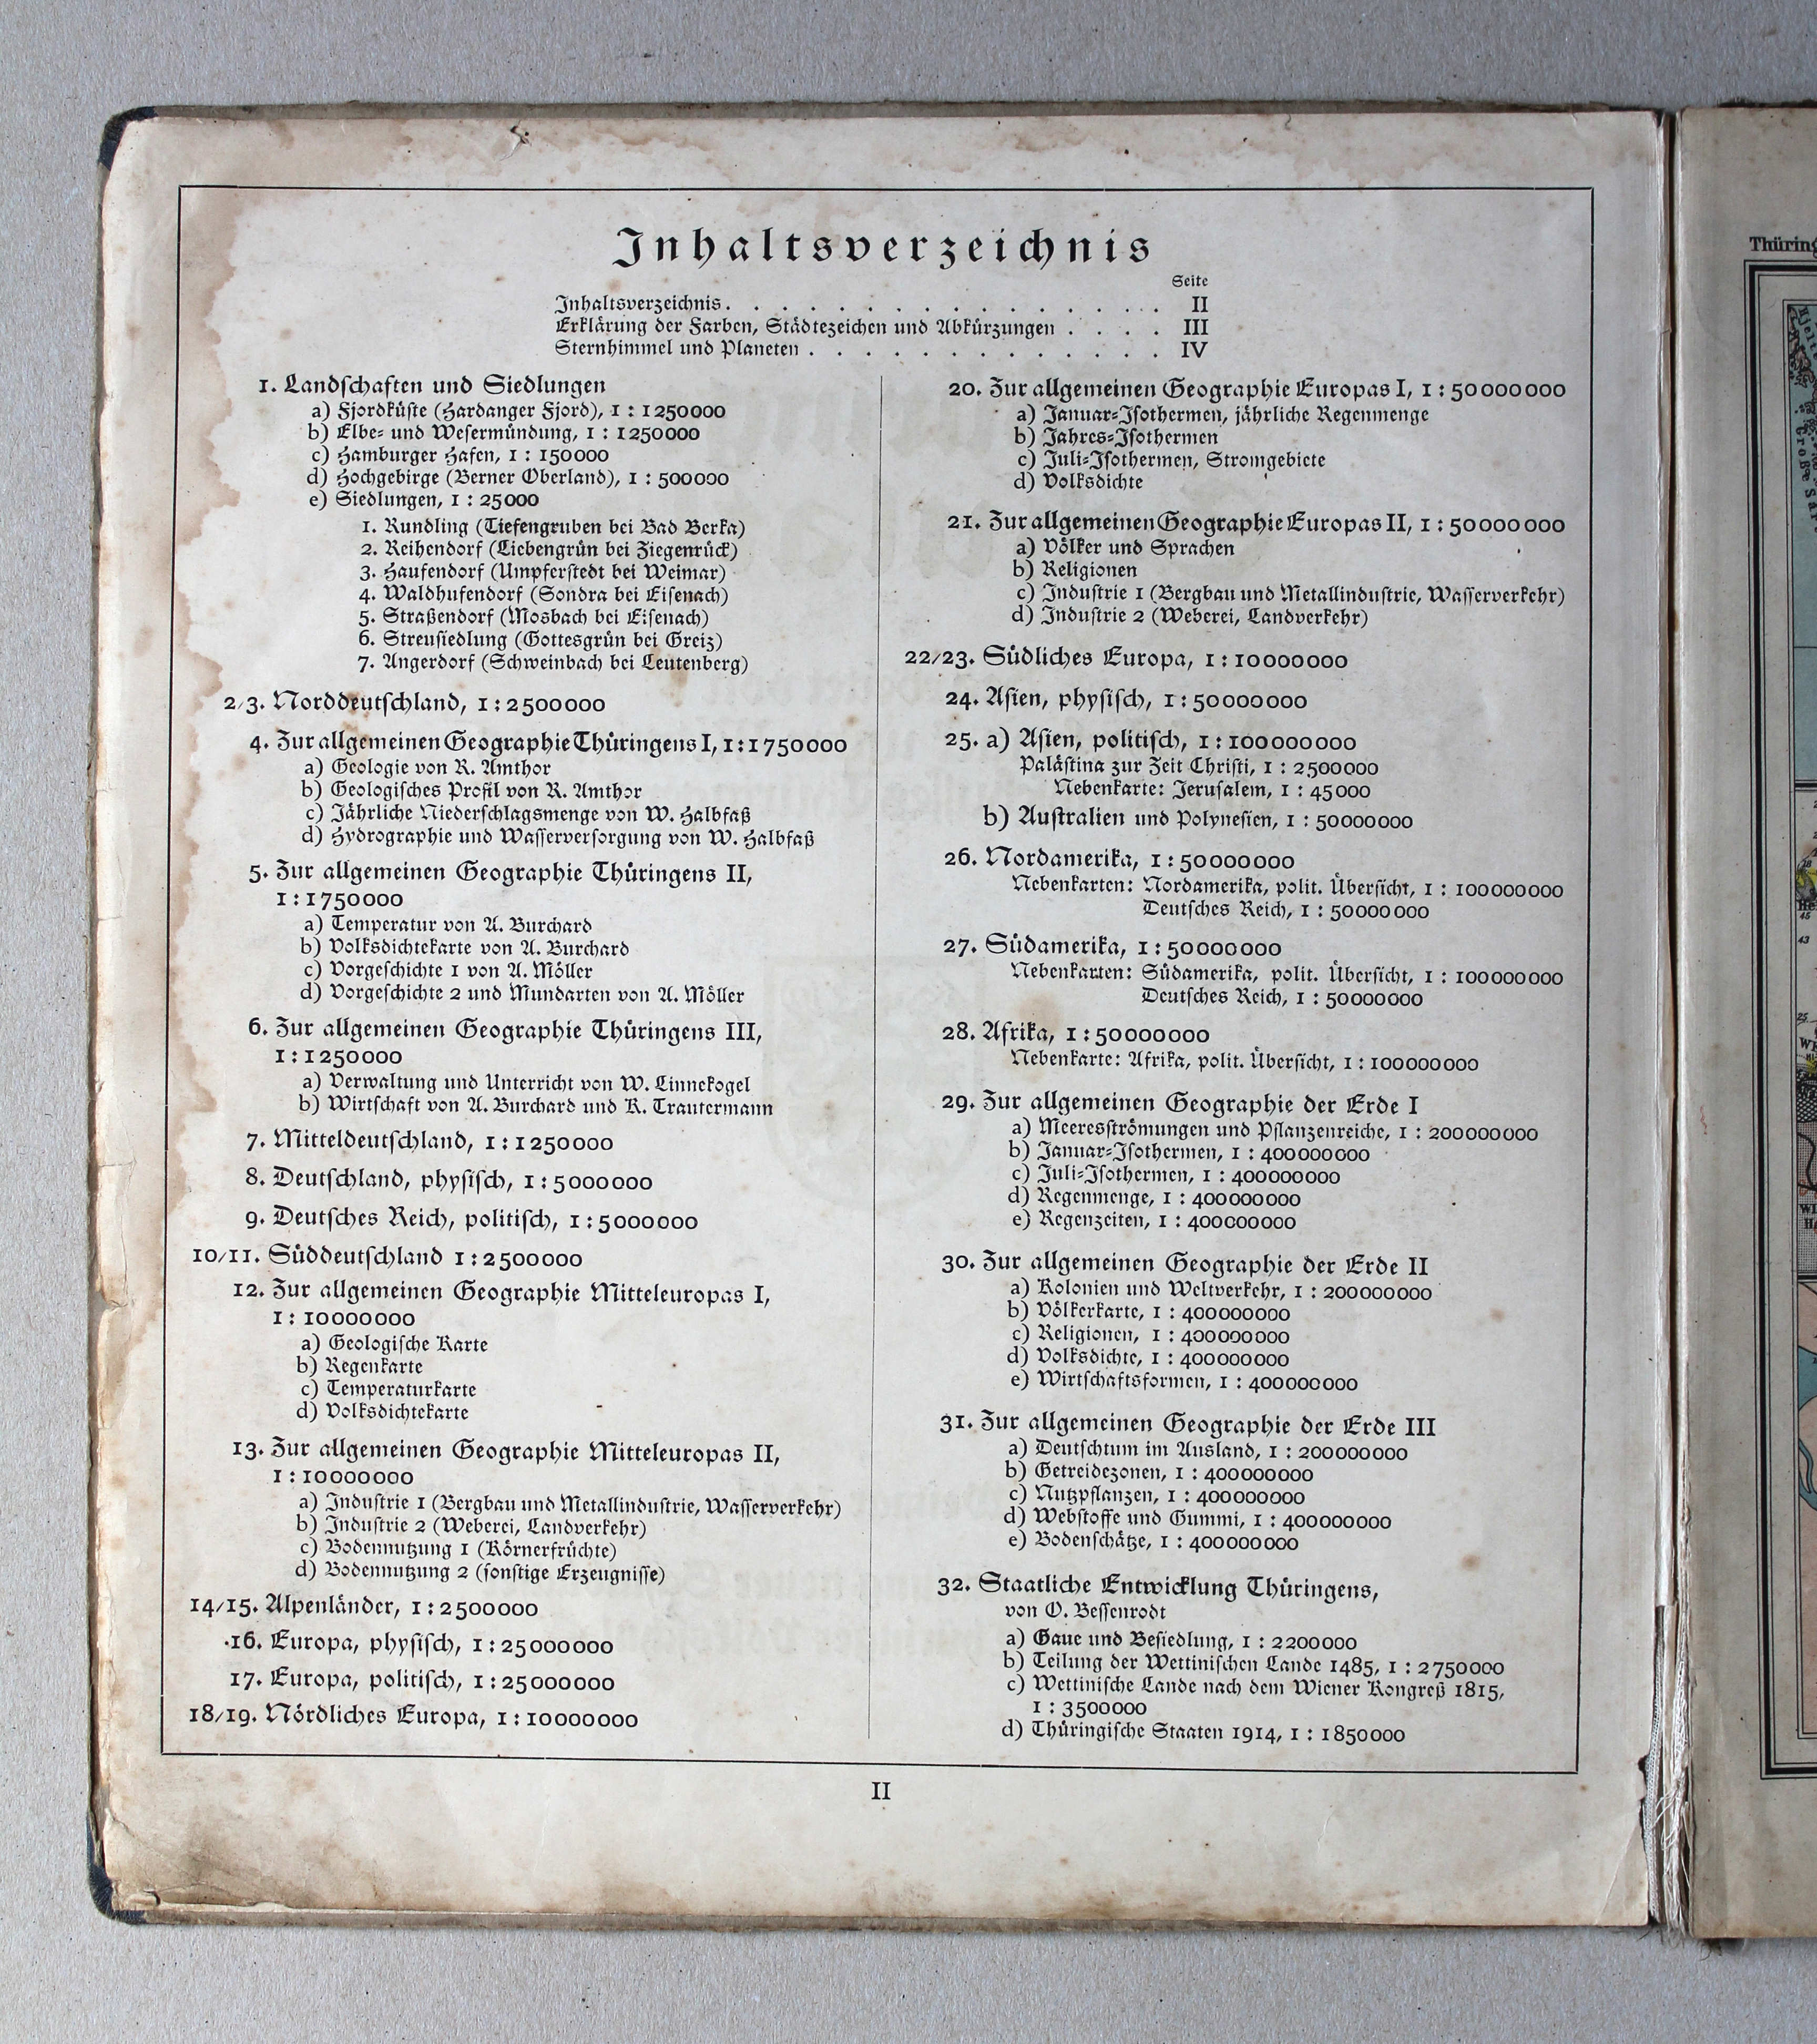 Inhaltsverzeichnis
Seite
Inhaltsverzeichnis . . . . . . . . . . . . . . . . II
Erklärung der Farben, Städtezeichen und Abkürzungen . . . . III
Sternhimmel und Planeten . . . . . . . . . . . . . IV
1. Landschaften und Siedlungen
a) Fjordküste (Hardanger Fjord), 1 : 1250000
b) Elbe- und Wesermündung, 1 : 1250000
c) Hamburger Hafen, 1 : 150000
d) Hochgebirge (Berner Oberland), 1 : 500000
e) Siedlungen, 1 : 25000
1. Rundling (Tiefengruben bei Bad Berka)
2. Reihendorf (Liebengrün bei Ziegenrück)
3. Haufendorf (Umpferstedt bei Weimar)
4. Waldhufendorf (Sondra bei Eisenach)
5. Straßendorf (Mosbach bei Eisenach)
6. Streusiedlung (Gottesgrün bei Greiz)
7. Angerdorf (Schweinbach bei Leutenberg)
2/3. Norddeutschland, 1 : 2500000
4. Zur allgemeinen Geographie Thüringens I, 1 : 1750000
a) Geologie von R. Amthor
b) Geologisches Profil von R. Amthor
c) Jährliche Niederschlagsmenge von W. Halbfaß
d) Hydrographie und Wasserversorgung von W. Halbfaß
5. Zur allgemeinen Geographie Thüringens II,
1 : 1750000
a) Temperatur von A. Burchard
b) Volksdichtekarte von A. Burchard
c) Vorgeschichte 1 von A. Möller
d) Vorgeschichte 2 und Mundarten von A. Möller
6. Zur allgemeinen Geographie Thüringens III,
1 : 1250000
a) Verwaltung und Unterricht von W. Linnekogel
b) Wirtschaft von A. Burchard und K. Trautermann
7. Mitteldeutschland, 1 : 1250000
8. Deutschland, physisch, 1 : 5000000
9. Deutsches Reich, politisch, 1 : 5000000
10/11. Süddeutschland 1 : 2500000
12. Zur allgemeinen Geographie Mitteleuropas I,
1 : 10000000
a) Geologische Karte
b) Regenkarte
c) Temperaturkarte
d) Volksdichtekarte
13. Zur allgemeinen Geographie Mitteleuropas II,
1 : 10000000
a) Industrie 1 (Bergbau und Metallindustrie, Wasserverkehr)
b) Industrie 2 (Weberei, Landverkehr)
c) Bodennutzung 1 (Körnerfrüchte)
d) Bodennutzung 2 (sonstige Erzeugnisse)
14/15. Alpenländer, 1 : 2500000
16. Europa, physisch, 1 : 25000000
17. Europa, politisch, 1 : 25000000
18/19. Nördliches Europa, 1 : 10000000
20. Zur allgemeinen Geographie Europas I, 1 : 50000000
a) Januar-Isothermen, jährliche Regenmenge
b) Jahres-Isothermen
c) Juli-Isothermen, Stromgebiete
d) Volksdichte
21. Zur allgemeinen Geographie Europas II, 1 : 50000000
a) Völker und Sprachen
b) Religionen
c) Industrie 1 (Bergbau und Metallindustrie, Wasserverkehr)
d) Industrie 2 (Weberei, Landverkehr)
22/23. Südliches Europa, 1 : 10000000
24. Asien, physisch, 1 : 50000000
25. a) Asien, politisch, 1 : 100000000
Palästina zur Zeit Christi, 1 : 2500000
Nebenkarte: Jerusalem, 1 : 45000
b) Australien und Polynesien, 1 : 50000000
26. Nordamerika, 1 : 50000000
Nebenkarten: Nordamerika, polit. Übersicht, 1 : 100000000
Deutsches Reich, 1 : 50000000
27. Südamerika, 1 : 50000000
Nebenkarten: Südamerika, polit. Übersicht, 1 : 100000000
Deutsches Reich, 1 : 50000000
28. Afrika, 1 : 50000000
Nebenkarte: Afrika, polit. Übersicht, 1 : 100000000
29. Zur allgemeinen Geographie der Erde I
a) Meeresströmungen und Pflanzenreiche, 1 : 200000000
b) Januar-Isothermen, 1 : 400000000
c) Juli-Isothermen, 1 : 400000000
d) Regenmenge, 1 : 400000000
e) Regenzeiten, 1 : 400000000
30. Zur allgemeinen Geographie der Erde II
a) Kolonien und Weltverkehr, 1 : 200000000
b) Völkerkarte, 1 : 400000000
c) Religionen, 1 : 400000000
d) Volksdichte, 1 : 400000000
e) Wirtschaftsformen, 1 : 400000000
31. Zur allgemeinen Geographie der Erde III
a) Deutschtum im Ausland, 1 : 200000000
b) Getreidezonen, 1 : 400000000
c) Nutzpflanzen, 1 : 400000000
d) Webstoffe und Gummi, 1 : 400000000
e) Bodenschätze, 1 : 400000000
32. Staatliche Entwicklung Thüringens,
von O. Bessenrodt
a) Gaue und Besiedlung, 1 : 2200000
b) Teilung der Wettinischen Lande 1485, 1 : 2750000
c) Wettinische Lande nach dem Wiener Kongreß 1815,
1 : 3500000
d) Thüringische Staaten 1914, 1 : 1850000
II
Thüring